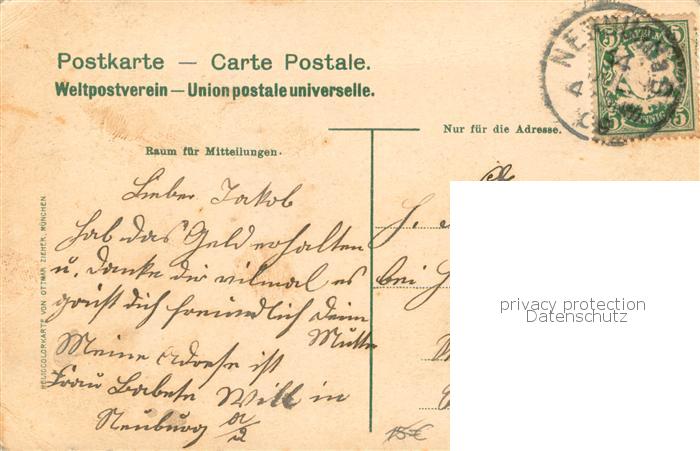 Postkarte — Carte Postale.
Weltpostverein — Union postale universelle.
Nur für die Adresse.
Raum für Mitteilungen.
Lieber Jakob
hab das Geld erhalten
u. danke dir vilmal es
grüst dich freundlich deine
Mutter
Meine Adrese ist
Frau Babete Will in
Neuburg a/D
bei
HELIOCOLORKARTE VON OTTMAR ZIEHER, MÜNCHEN
BAYERN
5 5
5 PFENNIG 5
privacy protection
Datenschutz
15€